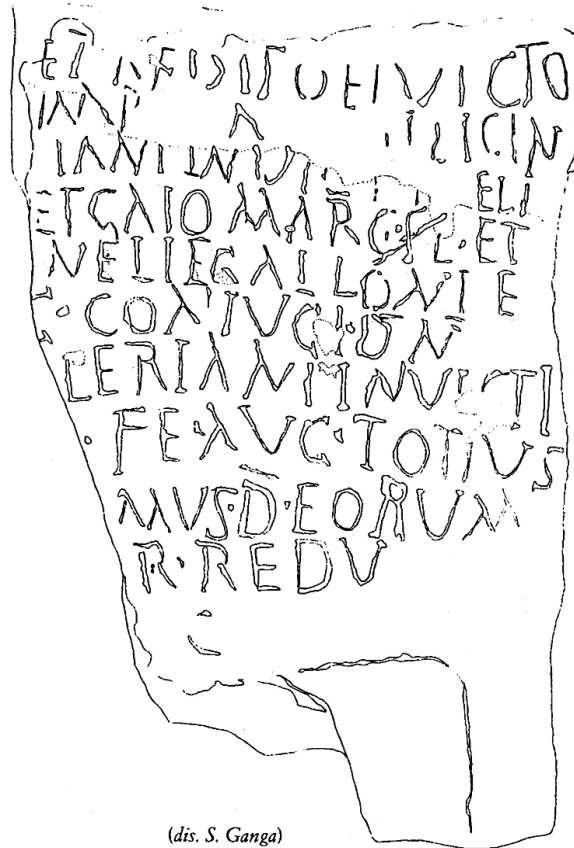 VICTO
IMP LICIN
IANI INVI
ELI
ET GAIO MARC FL·ET
NELIE GALLONIE
·COIVGI·D N
LERIANI INVICTI
·FE·AVG·TOTIVS
MVS·D·EORVM
R·REDV
(dis. S. Ganga)